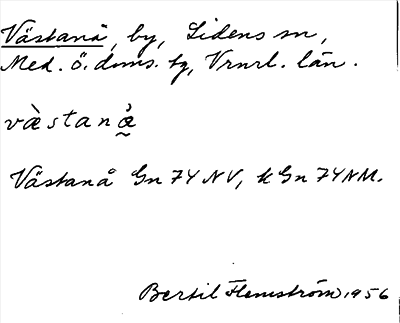 Västanå, by, Lidens sn,
Med. ö. doms. tg, Vrnrl. län.
væ̀stanå̰̉
Västanå Gn 74 NV, k Gn 74 NM.
Bertil Flemström 1956